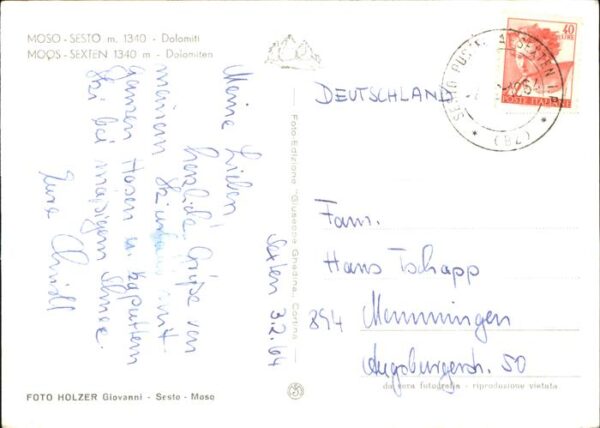 MOSO - SESTO m. 1340 - Dolomiti
MOOS - SEXTEN 1340 m - Dolomiten
Meine Lieben!
herzliche Grüße von
meinem Skiurlaub mit
ganzen Hosen u. kaputtem
Ski bei mäßigem Schnee.
Eure
Sexten 3.2.64
Foto-Edizione "Giuseppe Ghedina" Cortina
DEUTSCHLAND
40
LIRE
POSTE ITALIANE
SESTO PUST. SEXTEN I.P.
(BZ)
Fam.
Hans Tschapp
894 Memmingen
Augsburgerstr. 50
da vera fotografia - riproduzione vietata
FOTO HOLZER Giovanni - Sesto - Moso